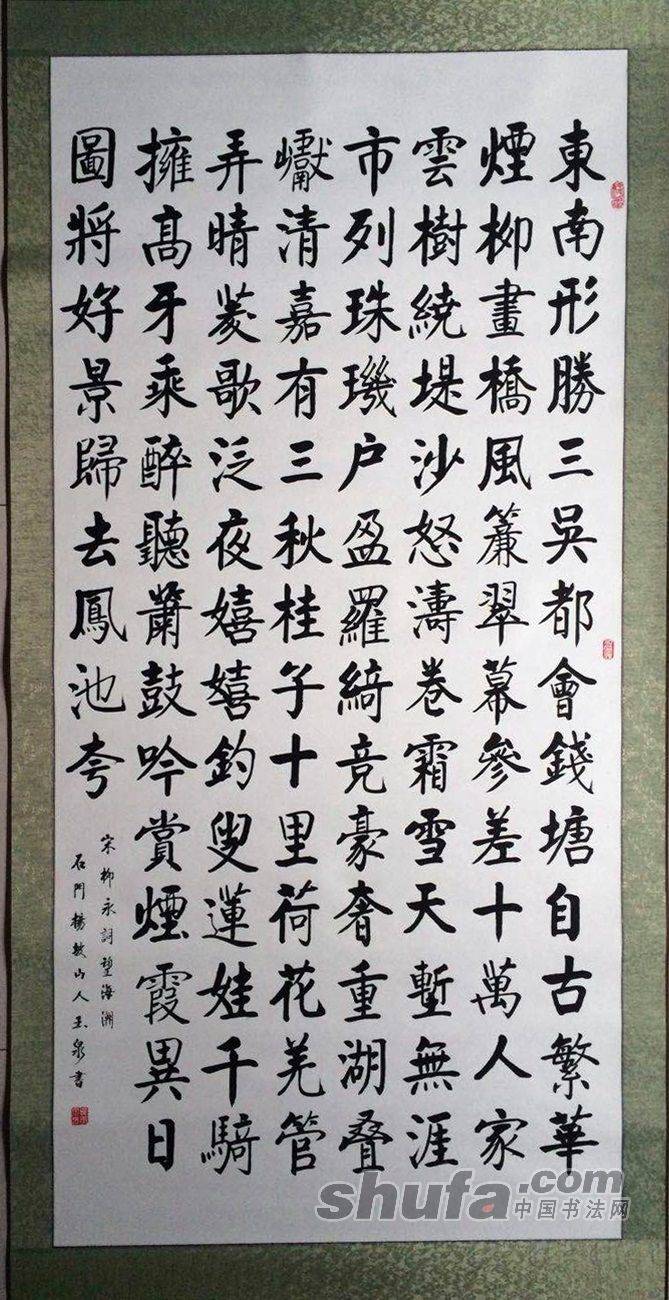 東南形勝三吳都會錢塘自古繁華
煙柳畫橋風簾翠幕參差十萬人家
雲樹繞堤沙怒濤卷霜雪天塹無涯
市列珠璣户盈羅綺竞豪奢重湖叠
巘清嘉有三秋桂子十里荷花羌管
弄晴菱歌泛夜嬉嬉釣叟蓮娃千騎
擁高牙乘醉聽簫鼓吟賞煙霞異日
圖將好景歸去鳳池夸
宋柳永詞望海潮
石門楊敏山人玉泉書
shufa.com
中国书法网